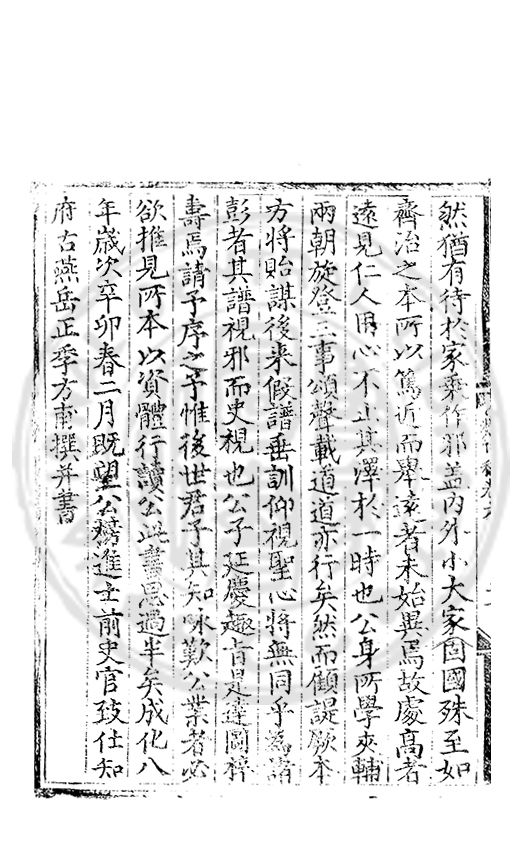 然猶有待於家乘作邪盖内外小大家固國殊至如
齊治之本所以篤近而舉遠者未始異焉故處高者
遠見仁人用心不止其澤於一時也公身所學夾輔
兩朝旋登三事頌聲載道道亦行矣然而顧諟厥本
方將貽謀後来假譜垂訓仰視聖心將無同乎為諸
彭者其譜視邪而史視也公子延慶趣肯是違圖
壽焉請予序之予惟後世君子其知咏歎公業者必
欲推見所本以資體行讀公此書思過半矣成化八
年歲次辛卯春二月既望公榜進士前史官致仕知
府古燕岳正季方甫撰并書